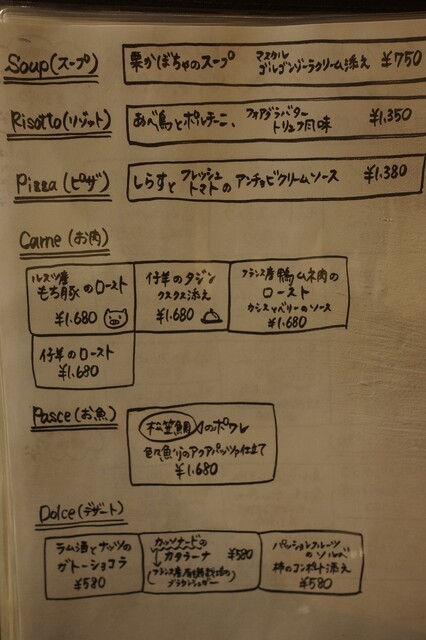 Soup(スープ)
栗かぼちゃのスープ マスカル
ゴルゴンゾーラクリーム添え ¥750
Risotto(リゾット)
あべ鳥とポルチーニ、フォアグラバター
トリュフ風味 ¥1,350
Pizza(ピザ)
しらすとフレッシュ
トマトのアンチョビクリームソース ¥1.380
Carne(お肉)
ルスツ産
もち豚のロースト
¥1.680
仔羊のタジン
クスクス添え
¥1.680
フランス産鴨ムネ肉の
ロースト
カシスベリーのソース
¥1.680
仔羊のロースト
¥1.680
Pesce(お魚)
松笠鯛のポワレ
色々魚介のアクアパッツァ仕立て
¥1.680
Dolce(デザート)
ラム酒とナッツの
ガトーショコラ
¥580
カソナードの
カタラーナ ¥580
ブラウンシュガー
パッションフルーツ
のソルベ
柿のコンポート添え
¥580